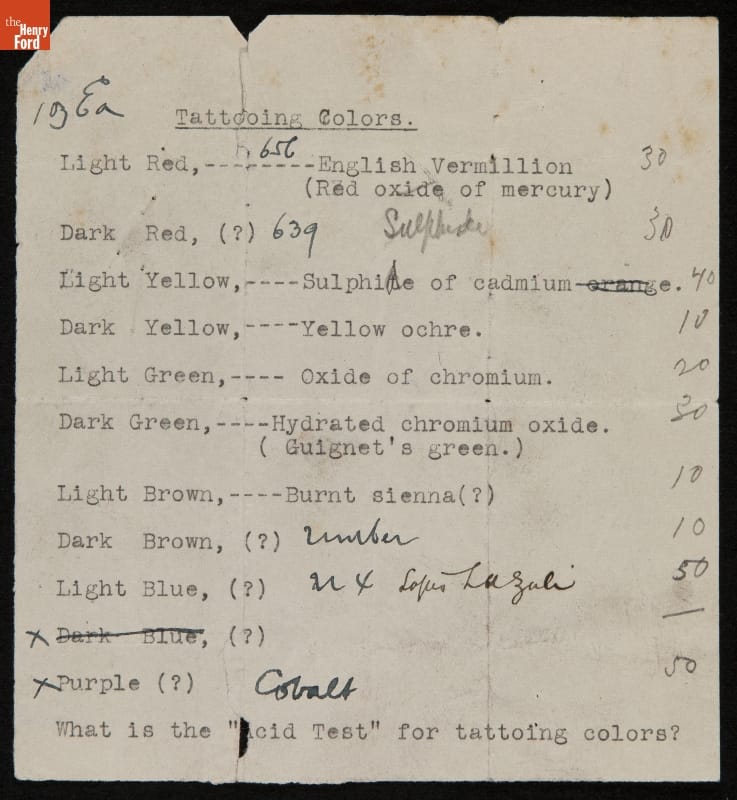 the
Henry
Ford
1 oz Ea
Tattooing Colors.
656
Light Red,--------English Vermillion 30
(Red oxide of mercury)
Dark Red, (?) 639 Sulphide 30
Light Yellow,----Sulphide of cadmium orange. 40
Dark Yellow,----Yellow ochre. 10
Light Green,---- Oxide of chromium. 20
Dark Green,----Hydrated chromium oxide. 30
( Guignet's green.)
Light Brown,----Burnt sienna(?) 10
Dark Brown, (?) umber 10
Light Blue, (?) Lapis Lazuli 50
x Dark Blue, (?) —
x Purple (?) Cobalt 50
What is the "Acid Test" for tattoing colors?